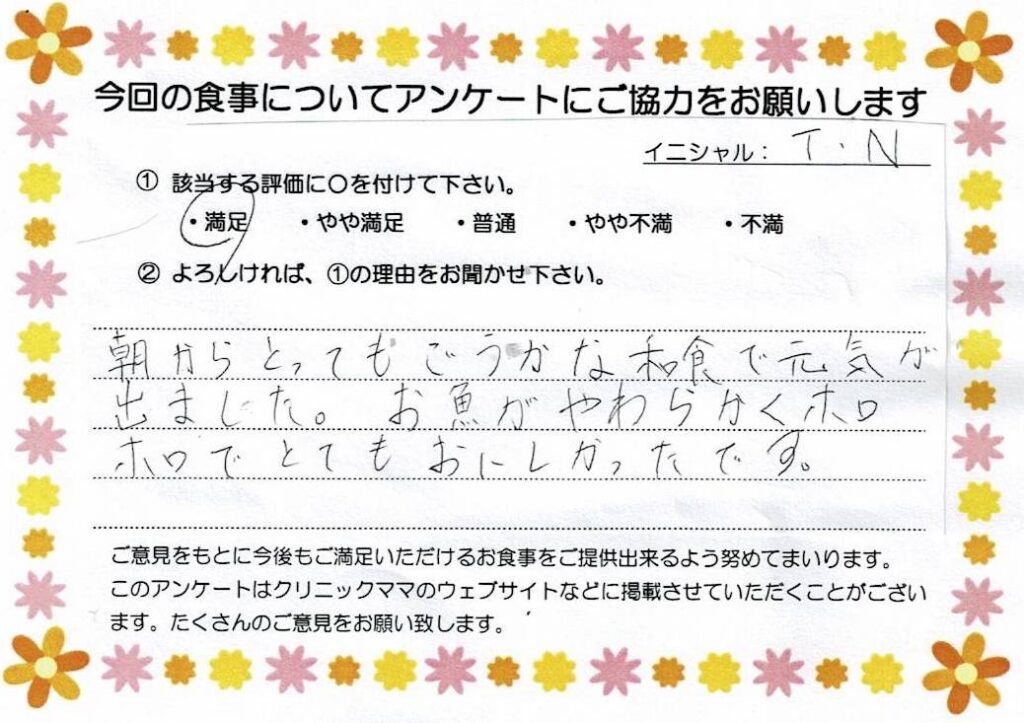 今回の食事についてアンケートにご協力をお願いします
イニシャル： T・N
① 該当する評価に〇を付けて下さい。
・満足 ・やや満足 ・普通 ・やや不満 ・不満
② よろしければ、①の理由をお聞かせ下さい。
朝からとってもごうかな和食で元気が
出ました。お魚がやわらかくホロ
ホロでとてもおにしかったです。
ご意見をもとに今後もご満足いただけるお食事をご提供出来るよう努めてまいります。
このアンケートはクリニックママのウェブサイトなどに掲載させていただくことがござい
ます。たくさんのご意見をお願い致します。